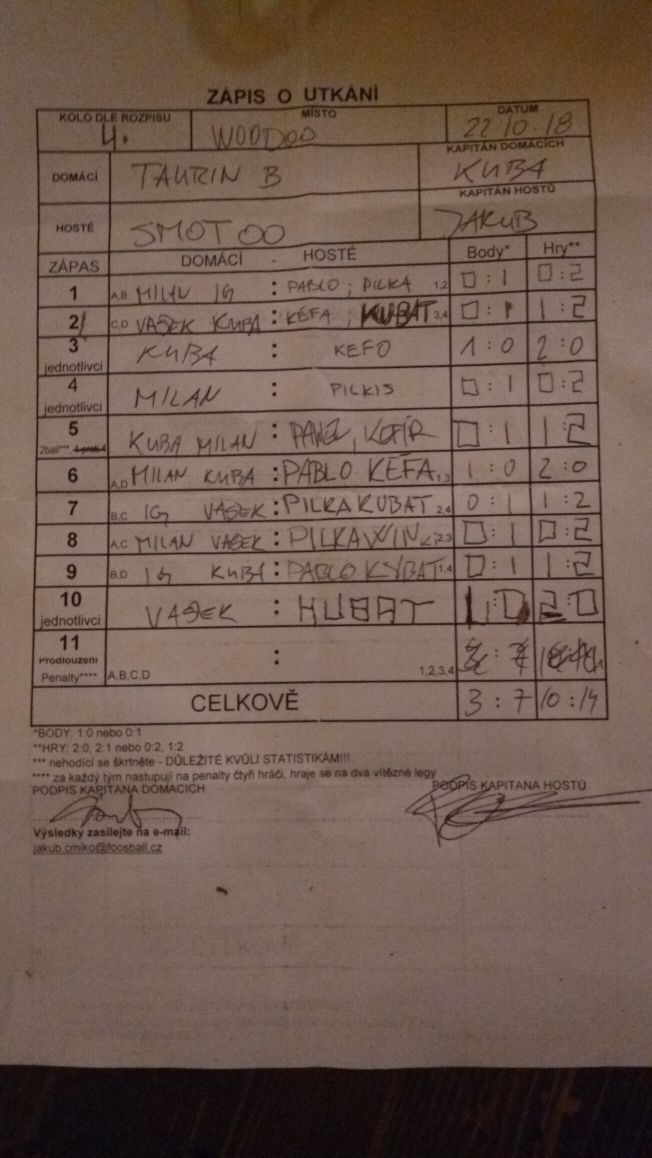 ZÁPIS O UTKÁNÍ
KOLO DLE ROZPISU MÍSTO DATUM
4. WOODOO 22.10.18
DOMÁCÍ TAURIN B KAPITÁN DOMÁCÍCH KUBA
HOSTÉ SMOTOO KAPITÁN HOSTŮ JAKUB
ZÁPAS DOMÁCÍ - HOSTÉ Body* Hry**
1 A,B MILAN IG : PABLO ; PILKA 1,2 0:1 0:2
2 C,D VAŠEK KUBA : KEFA ; KUBAT 3,4 0:1 1:2
3 jednotlivci KUBA : KEFO 1:0 2:0
4 jednotlivci MILAN : PILKIS 0:1 0:2
5 2ball***, KUBA MILAN : PAWEL, KOFIR 0:1 1:2
6 A,D MILAN KUBA : PABLO KEFA 1,3 1:0 2:0
7 B,C IG VAŠEK : PILKA KUBAT 2,4 0:1 1:2
8 A,C MILAN VAŠEK : PILKA 2,3 0:1 0:2
9 B,D IG KUBA : PABLO KYBAT 1,4 0:1 1:2
10 jednotlivci VAŠEK : HUBAT 1:0 2:0
11 Prodloužení Penalty**** A,B,C,D : 1,2,3,4
CELKOVĚ 3:7 10:14
*BODY: 1:0 nebo 0:1
**HRY: 2:0, 2:1 nebo 0:2, 1:2
*** nehodící se škrtněte - DŮLEŽITÉ KVŮLI STATISTIKÁM!!!
**** za každý tým nastupují na penalty čtyři hráči, hraje se na dva vítězné legy
PODPIS KAPITÁNA DOMÁCÍCH PODPIS KAPITÁNA HOSTŮ
Výsledky zasílejte na e-mail:
jakub.cmiko@foosball.cz